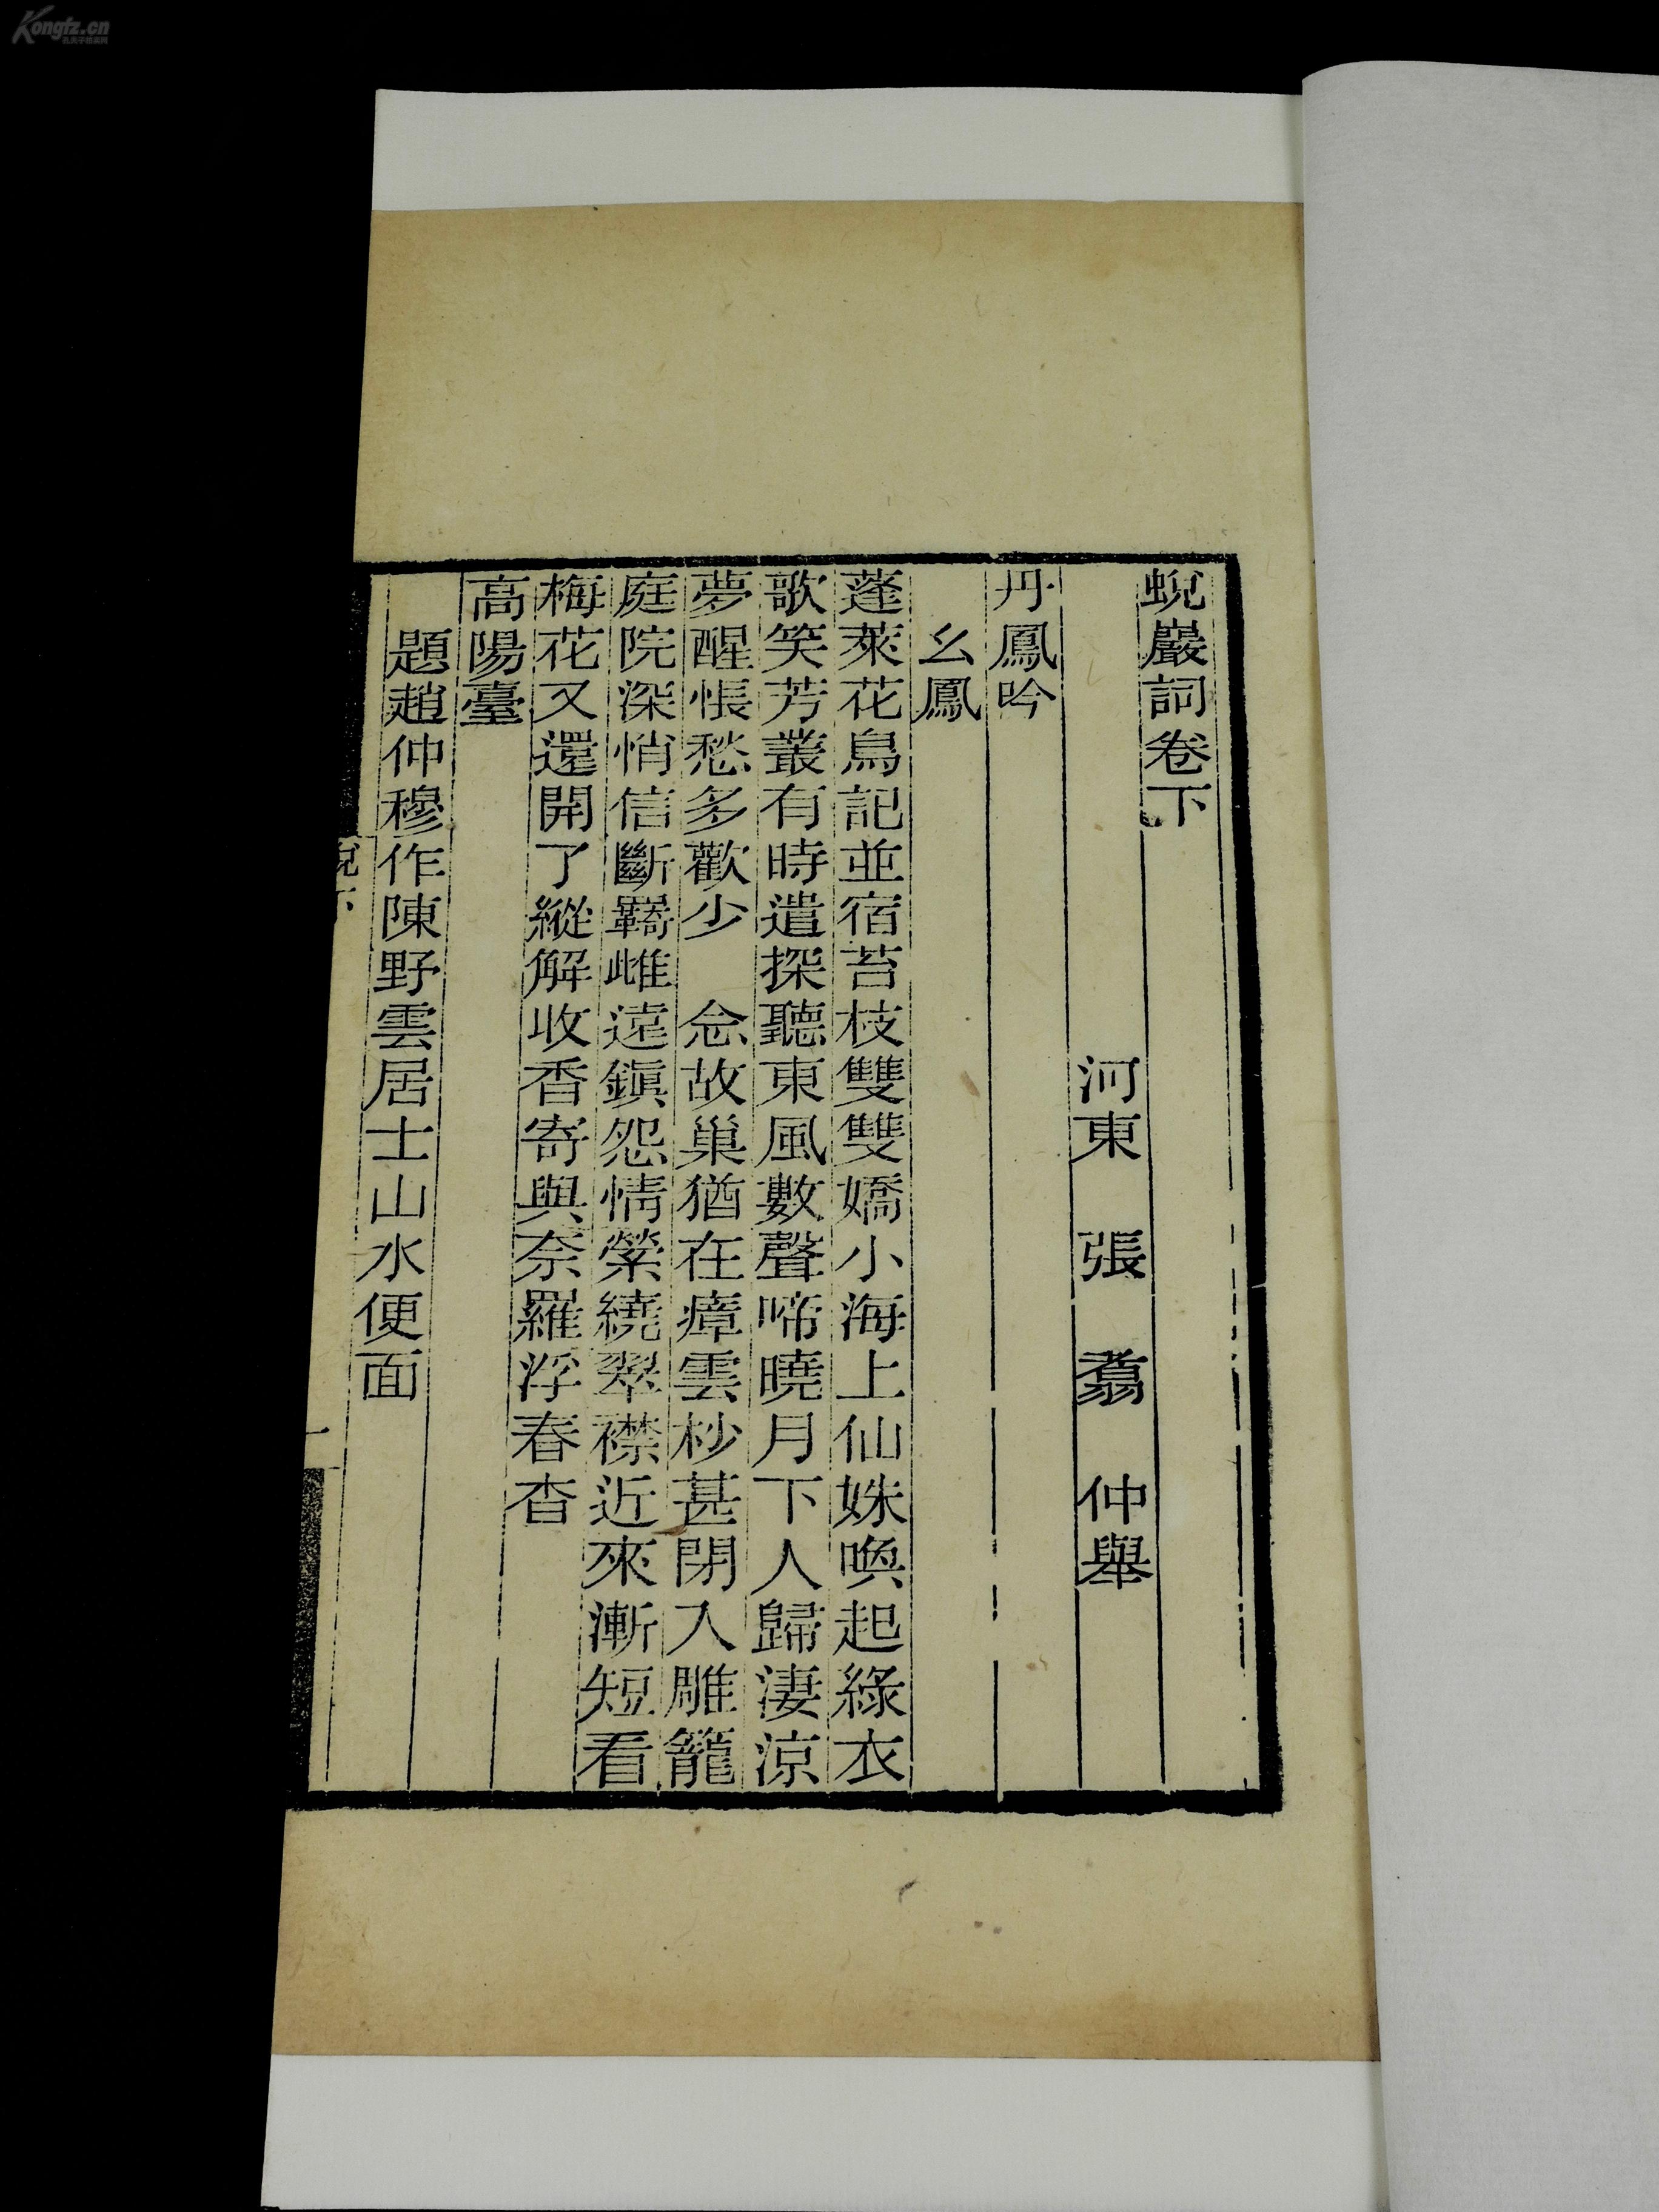 蛻巖詞卷下
河東 張 翥 仲舉
丹鳳吟
幺鳳
蓬萊花鳥記並宿苔枝雙雙嬌小海上仙姝喚起綠衣
歌笑芳叢有時遣探聽東風數聲啼曉月下人歸淒涼
夢醒悵愁多歡少 念故巢猶在瘴雲杪甚閉入雕籠
庭院深悄信斷羇雌遠鎮怨情縈繞翠襟近來漸短看
梅花又還開了縱解收香寄與奈羅浮春杳
高陽臺
題趙仲穆作陳野雲居士山水便面
蛻下
一
Kongfz.cn